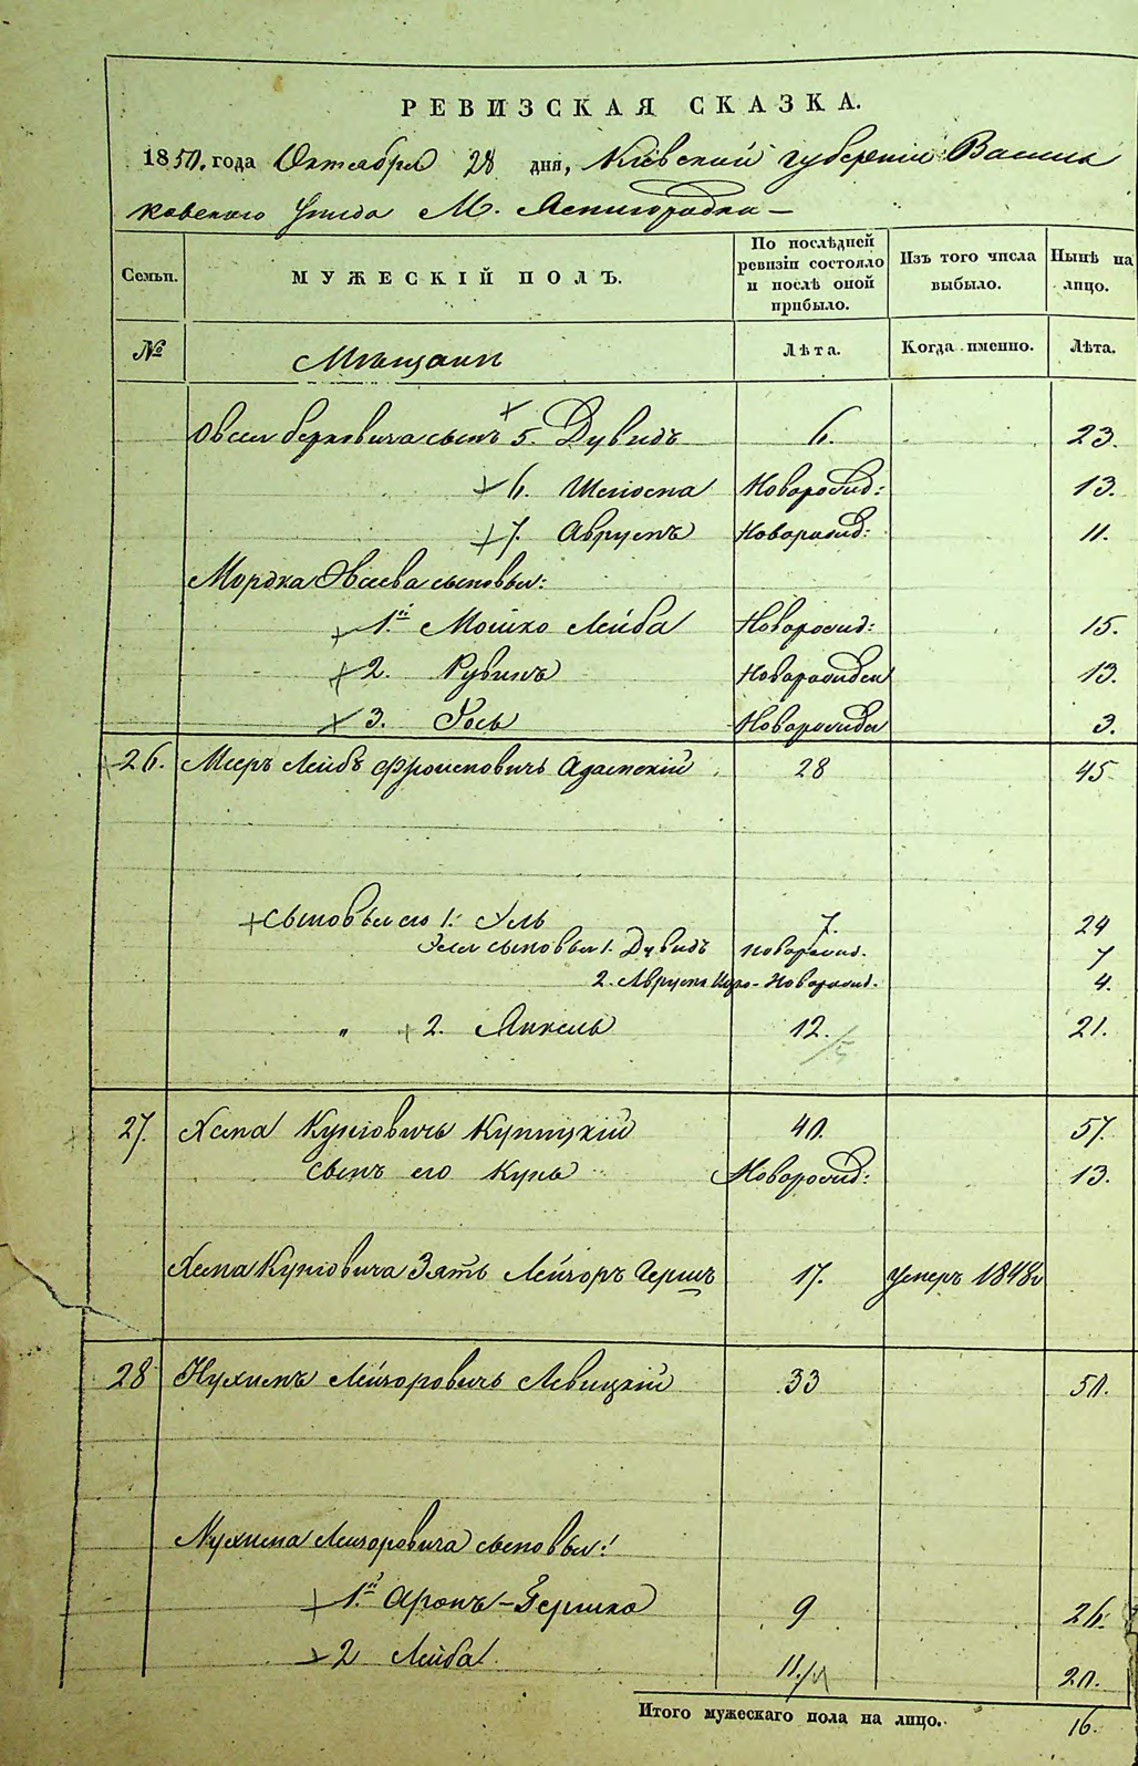 РЕВИЗСКАЯ СКАЗКА.
1850. года Октября 28 дня, Кіевской губерніи Василь
ковскаго Уезда М. Ясногородка —
Семьи. МУЖЕСКІЙ ПОЛЪ. По послѣдней ревизіи состояло и послѣ оной прибыло. Изъ того числа выбыло. Нынѣ на лицо.
№ Мещани Лѣта. Когда именно. Лѣта.
Овсея Берковича сынъ 5. Дувидъ 6. 23.
6. Новорожд: 13.
7. Аврумъ Новорожд: 11.
Мордка Овсеева сыновья:
1й Мошко Лейба Новорожд: 15.
2. Рувинъ Новорожден 13.
3. Новорожден 3.
26. Мееръ Лейбъ Фроимовичъ Адамскій 28 45
сыновья его 1. 7. 24
сыновья 1. Дувидъ новорожд. 7
2. Аврумъ Новорожд. 4.
" 2. Янкель 12. /5 21.
27. Хаима Куніовичъ Куницкій 40. 57.
сынъ его Кунь Новорожд: 13.
Хаима Куніовича Зять Лейзоръ Герш 17. умеръ 1848г
28 Нухимъ Лейзоровичъ Левицкій 33 50.
Нухима Лейзоровича сыновья:
1й Аронъ-Гершко 9 26.
2 Лейба 11./4 20.
Итого мужескаго пола на лицо. 16.